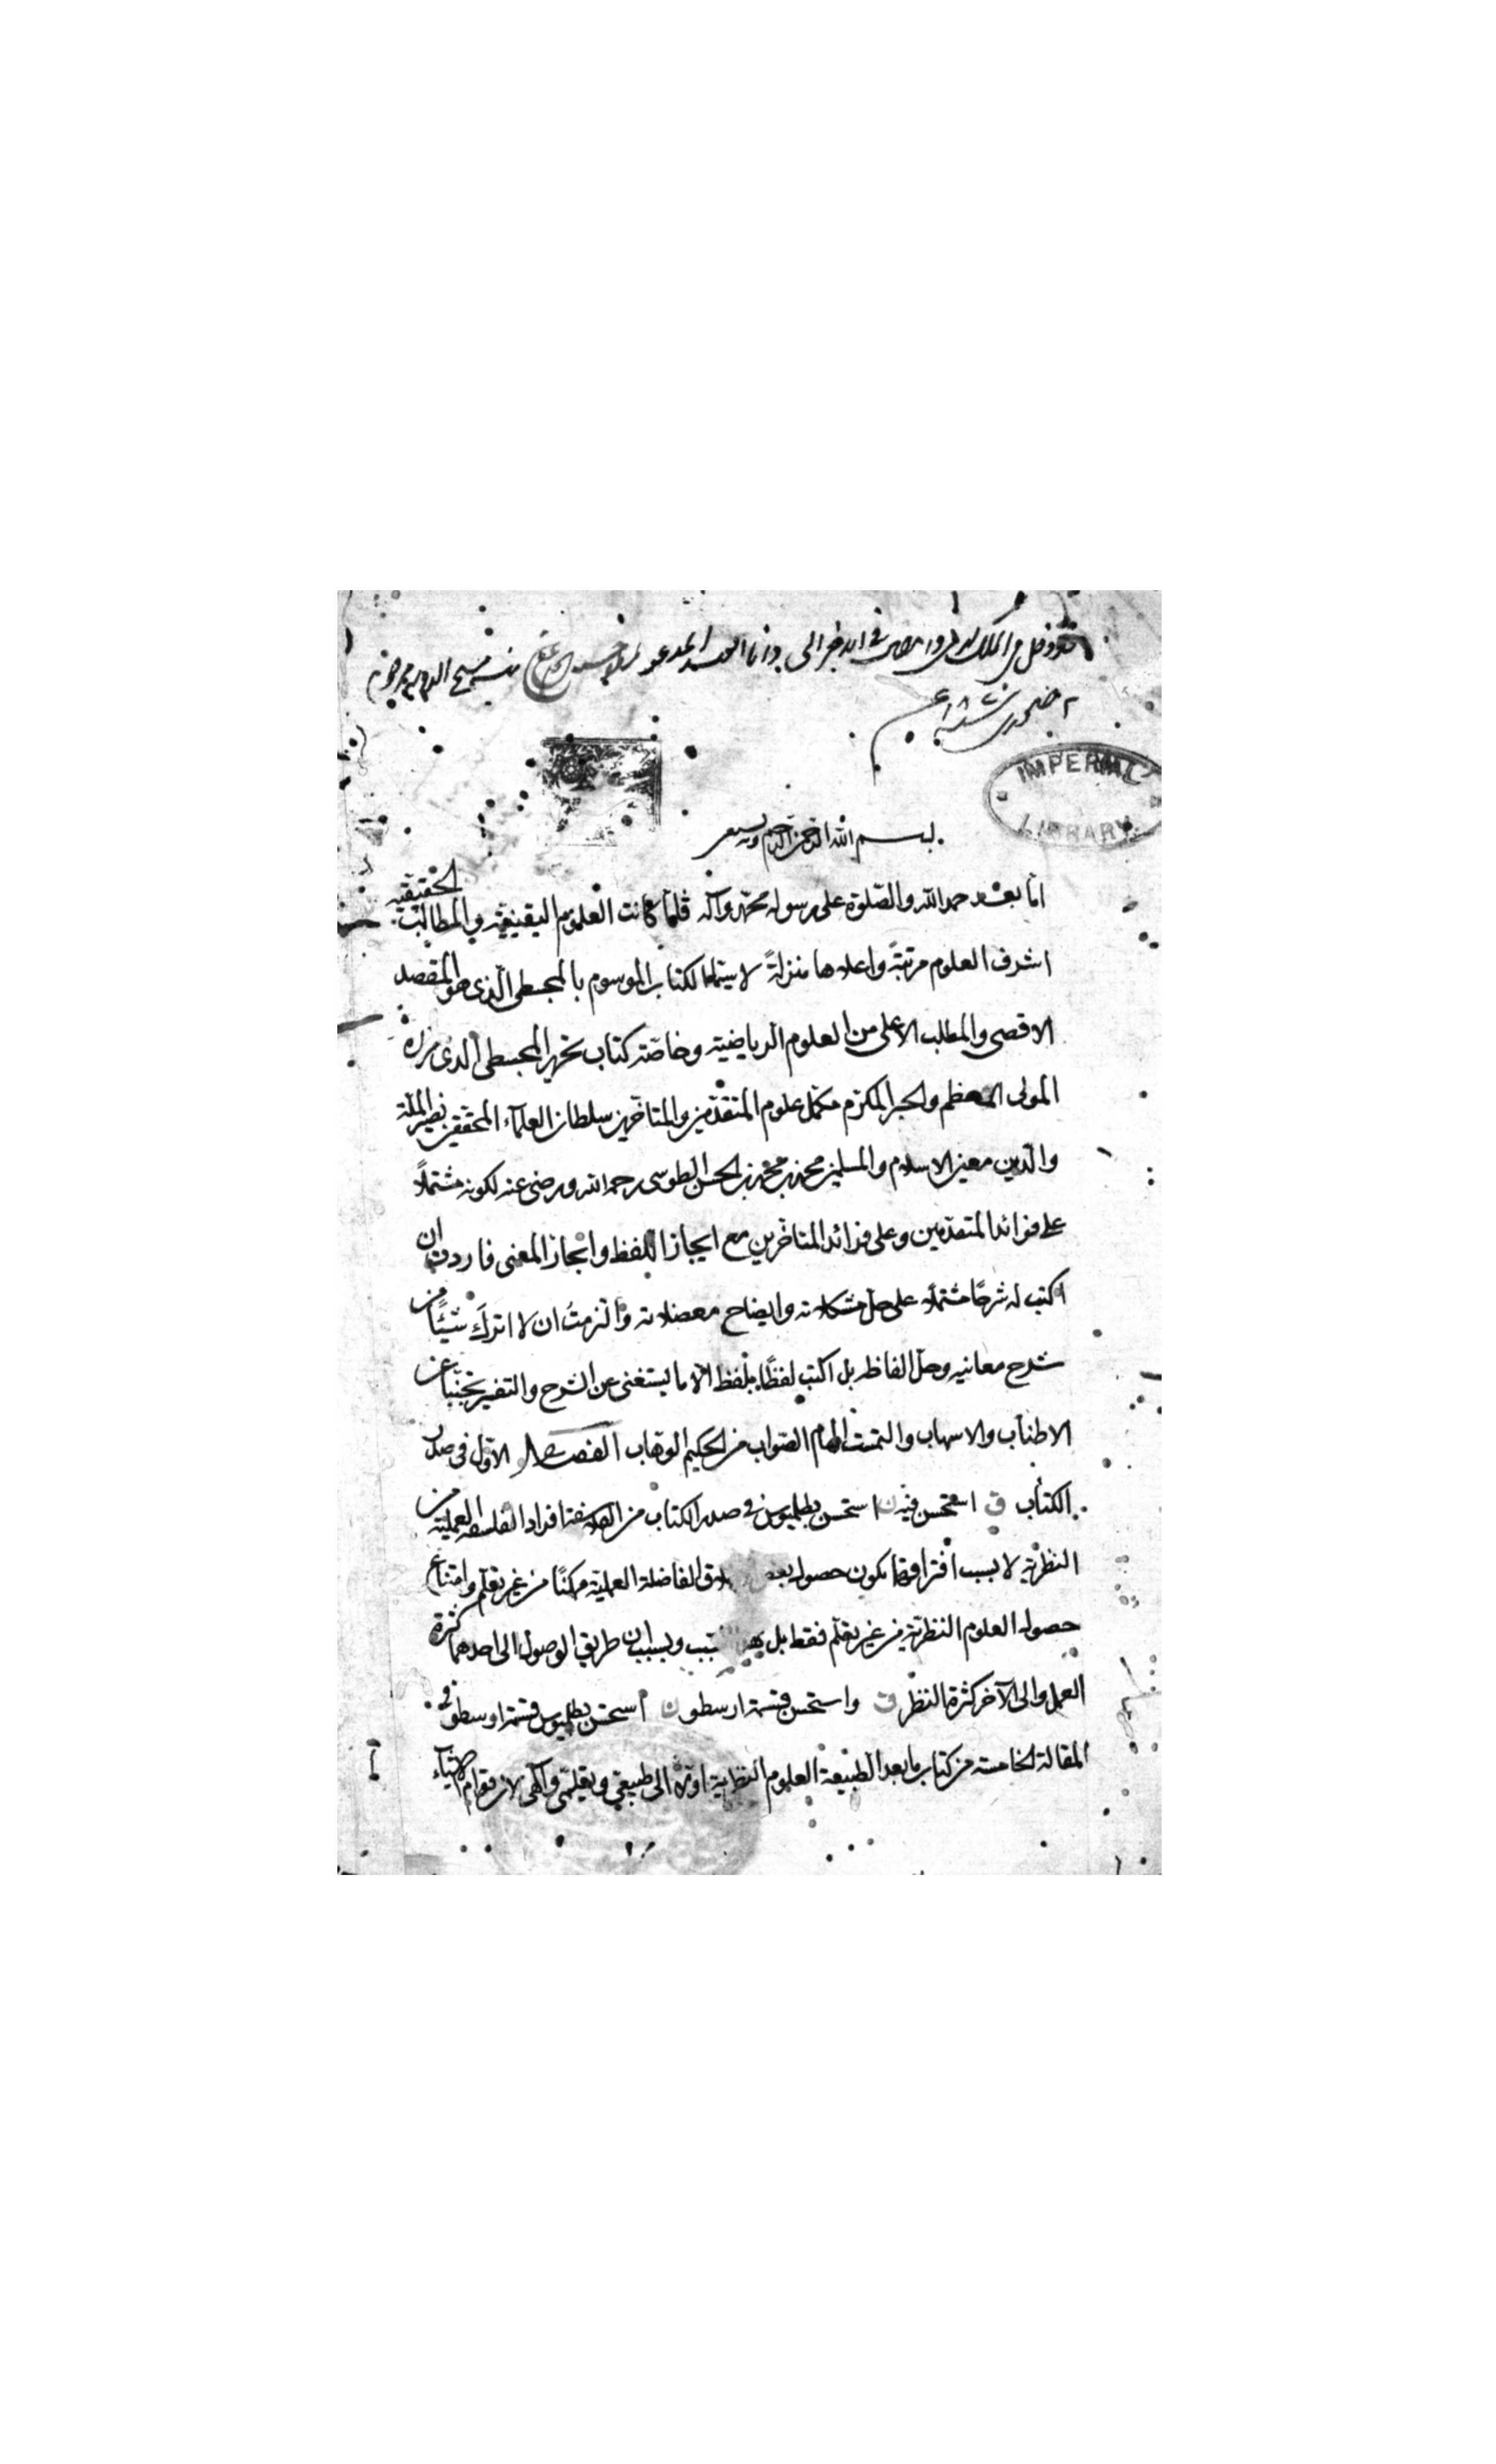 IMPERIAL
LIBRARY
بسم الله الرحمن الرحيم وبه نستعين
اما بعد حمد الله والصلوة على رسوله محمد وآله فلما كانت العلوم اليقينية والمطالب الحقيقية
اشرف العلوم مرتبةً واعلاها منزلةً لا سيما الكتاب الموسوم بالمجسطى الذى هو المقصد
الاقصى والمطلب الاعلى من العلوم الرياضية وخاصة كتاب تحرير المجسطى الذى حرره
المولى المعظم والحبر المكرم مكمل علوم المتقدمين والمتاخرين سلطان العلماء المحققين نصير الملة
والدين معين الاسلام والمسلمين محمد بن محمد بن الحسن الطوسى رحمه الله ورضى عنه لكونه مشتملاً
على فوائد المتقدمين وعلى فرائد المتاخرين مع ايجاز اللفظ وانجاز المعنى فاردت ان
اكتب له شرحًا مشتملا على حل مشكلاته وايضاح معضلاته والتزمتُ ان لا اتركَ شيئًا من
شرح معانيه وحل الفاظه بل اكتب لفظًا بلفظ الا ما يستغنى عن الشرح والتفسير تجنبا عن
الاطناب والاسهاب والتمست الهام الصواب من الحكيم الوهاب الفصل الاول فى صدر
الكتاب ق استحسن فيه ن استحسن بطلميوس فى صدر الكتاب من الفلاسفة افراد الفلسفة العملية من
النظرية لا بسبب افتراقهما بكون حصول بعض الفاضلة العملية ممكنًا من غير تعلم وامتناع
حصول العلوم النظرية من غير تعلم فقط بل وبسبب ان طريق الوصول الى احدهما كثرة
العمل والى الآخر كثرة النظر ق واستحسن قسمة ارسطو ن استحسن بطلميوس قسمة ارسطو فى
المقالة الخامسة من كتاب ما بعد الطبيعة العلوم النظرية اولا الى طبيعى وتعليمى والهى لان قوام الاشياء